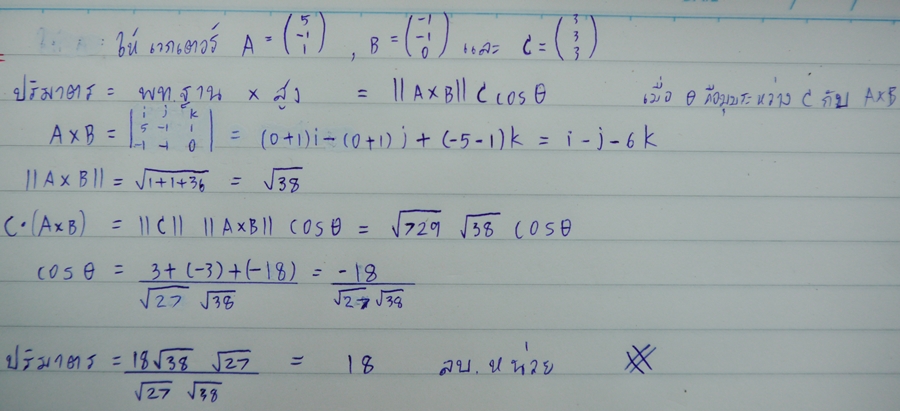 ให้ เวกเตอร์ A = (5 -1 1), B = (-1 -1 0) และ C = (3 3 3)
ปริมาตร = พท.ฐาน × สูง = ||A×B|| C cos θ เมื่อ θ คือมุมระหว่าง C กับ A×B
A×B = |i j k 5 -1 1 -1 -1 0| = (0+1)i-(0+1)j+(-5-1)k = i-j-6k
||A×B|| = √1+1+36 = √38
C•(A×B) = ||C|| ||A×B|| cos θ = √729 √38 cos θ
cos θ = 3+(-3)+(-18) / √27 √38 = -18 / √27 √38
ปริมาตร = 18√38 √27 / √27 √38 = 18 ลบ.หน่วย